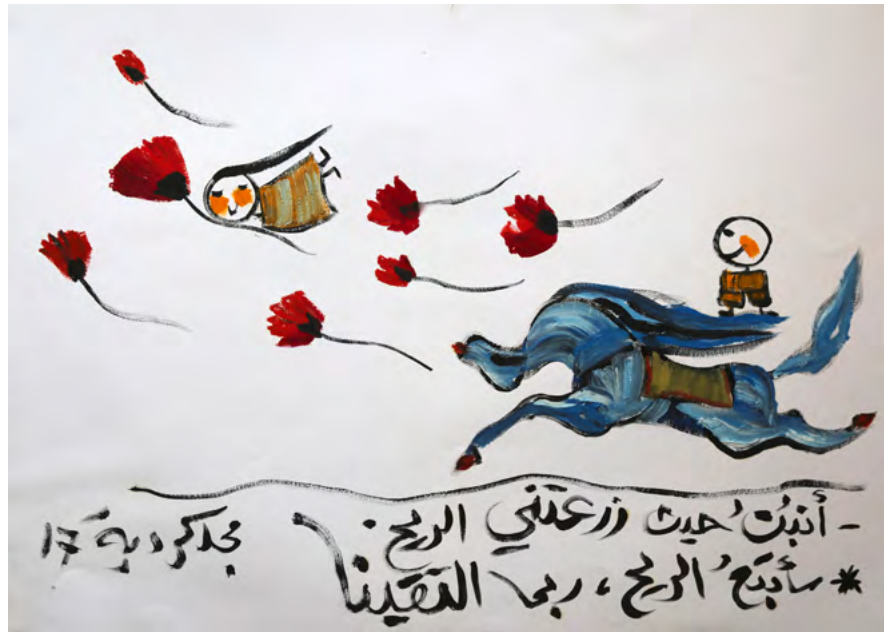 - أنبتُ حيث زرعتني الريح.
* سأتبعُ الريح، ربما التقينا
مجد كردية 17